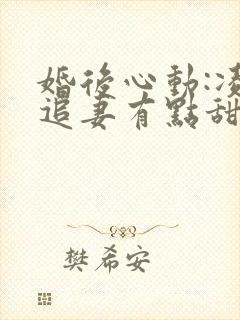 婚後心動:凌
追妻有點甜
樊希安